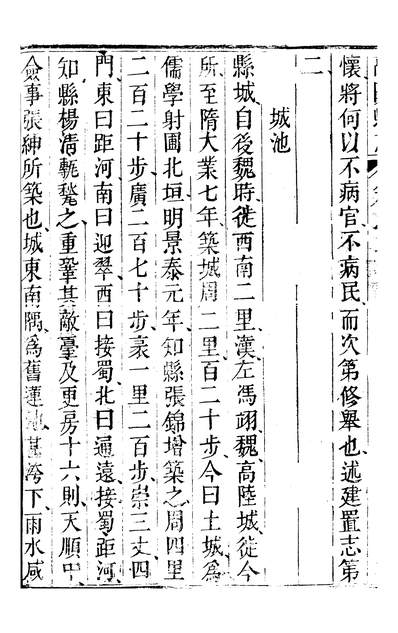 懷將何以不病官不病民而次第修舉也述建置志第
二
城池
縣城自後魏時徙西南二里漢左馮翊魏高陸城徙今
所至隋大業七年築城周二里百二十步今曰土城爲
儒學射圃北垣明景泰元年知縣張錦增築之周四里
二百二十步廣二百七十步袤一里二百步崇三丈四
門東曰距河南曰迎翠西曰接蜀北曰通遠接蜀距河
知縣楊清甎甃之重鞏其敵臺及更房十六則天順中
僉事張紳所築也城東南隅爲舊蓮池甚洿下雨水咸